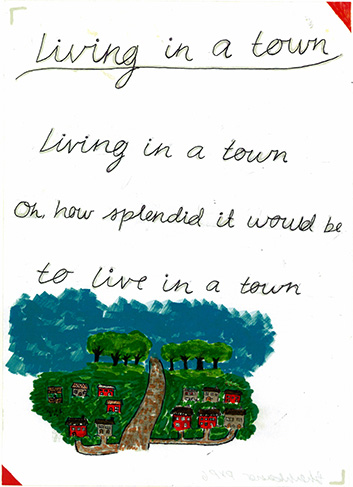 Living in a town
Living in a town
Oh, how splendid it would be
to live in a town